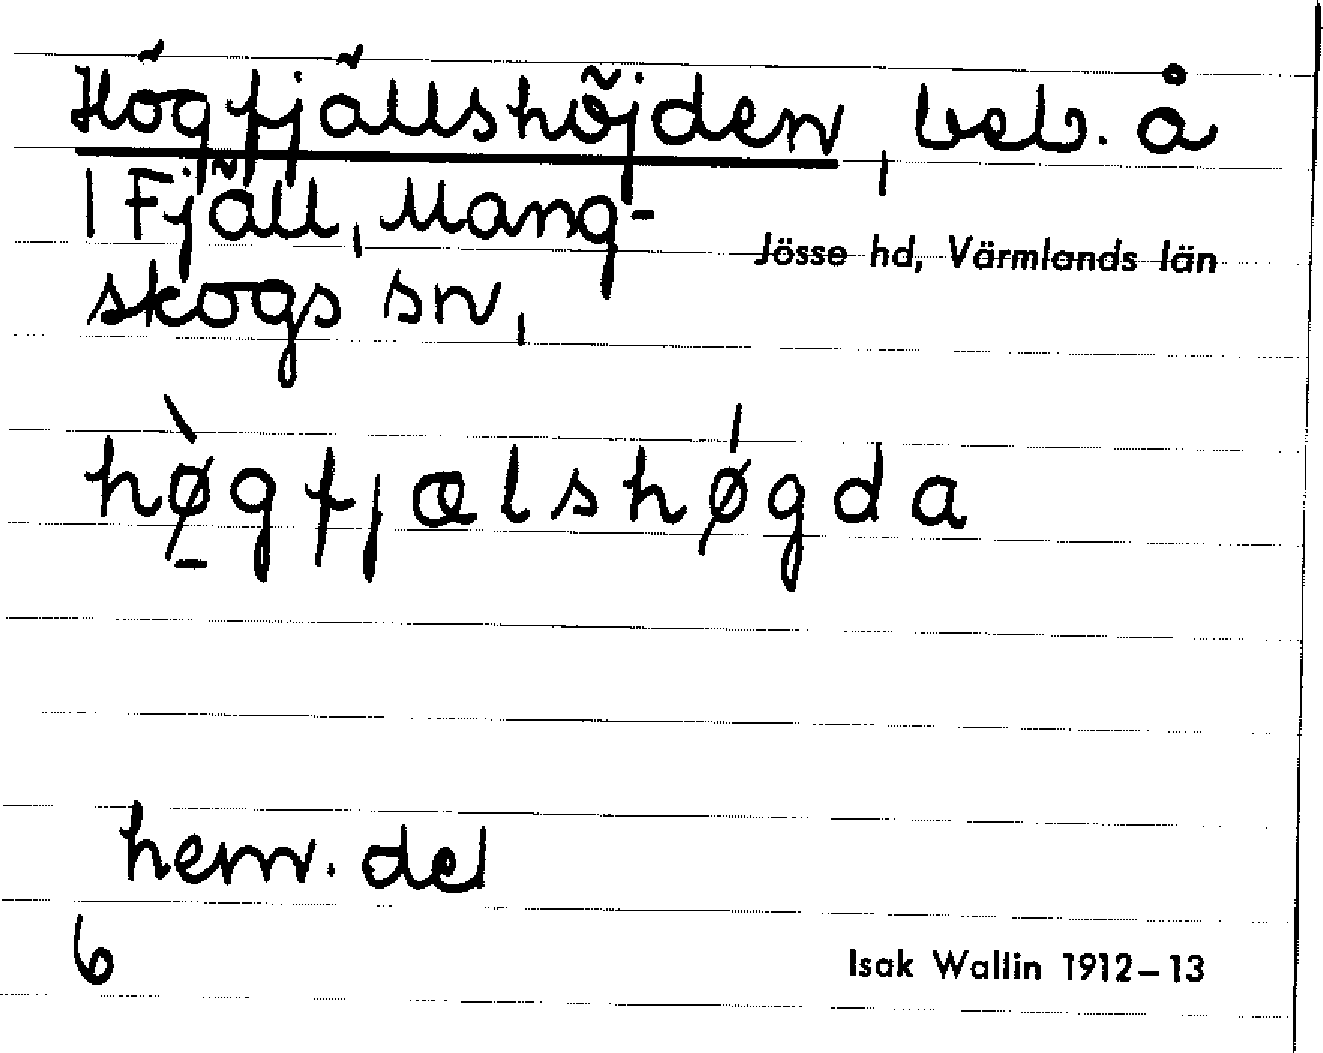 Högfjällshöjden, beb. å
1 Fjäll, Mang-
Jösse hd, Värmlands län
skogs sn,
hø̱̀gfjælshǿgda
hem. del
6
Isak Wallin 1912–13